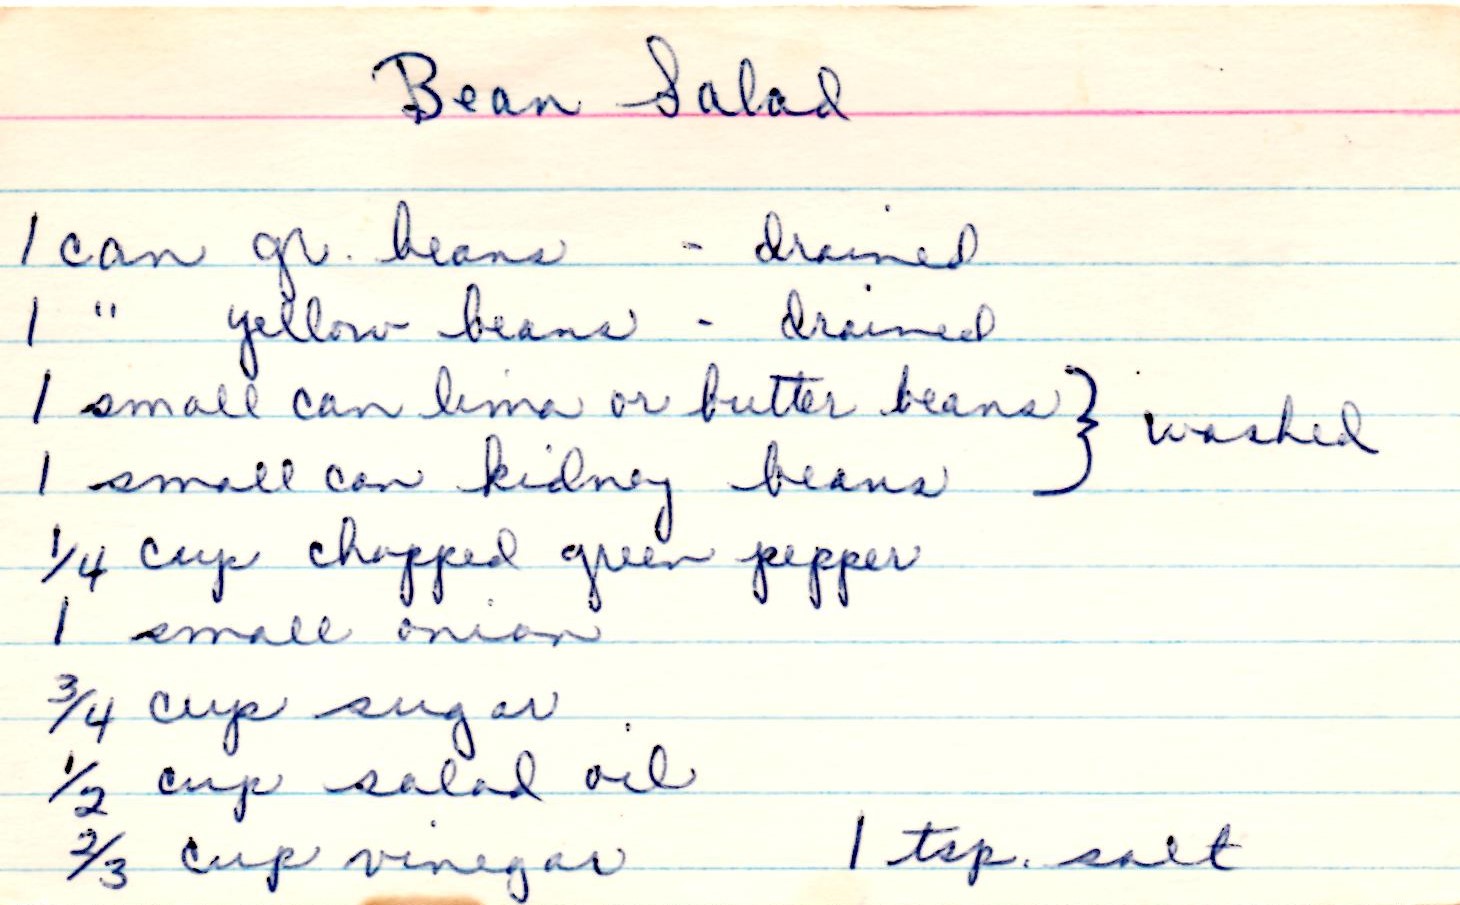 Bean Salad
1 can gr. beans - drained
1 " yellow beans - drained
1 small can lima or butter beans } washed
1 small can kidney beans
1/4 cup chopped green pepper
1 small onion
3/4 cup sugar
1/2 cup salad oil
2/3 cup vinegar 1 tsp. salt